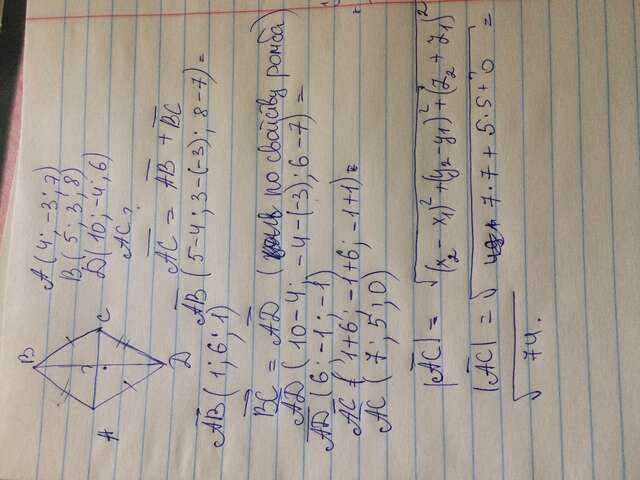 B
A
C
D
A (4; -3; 7)
B (5; 3; 8)
D (10; -4; 6)
AC ?
AC = AB + BC
AB ( 5-4; 3-(-3); 8-7) =
AB ( 1; 6; 1)
BC = AD ( по свойству ромба)
AD ( 10-4; -4-(-3); 6-7) =
AD (6; -1; -1)
AC = 1+6; -1+6; -1+1) =
AC ( 7; 5; 0)
|AC| = √(x₂ - x₁)² + (y₂ - y₁)² + (z₂ + z₁)²
|AC| = √ 7·7 + 5·5 + 0 =
√ 74.